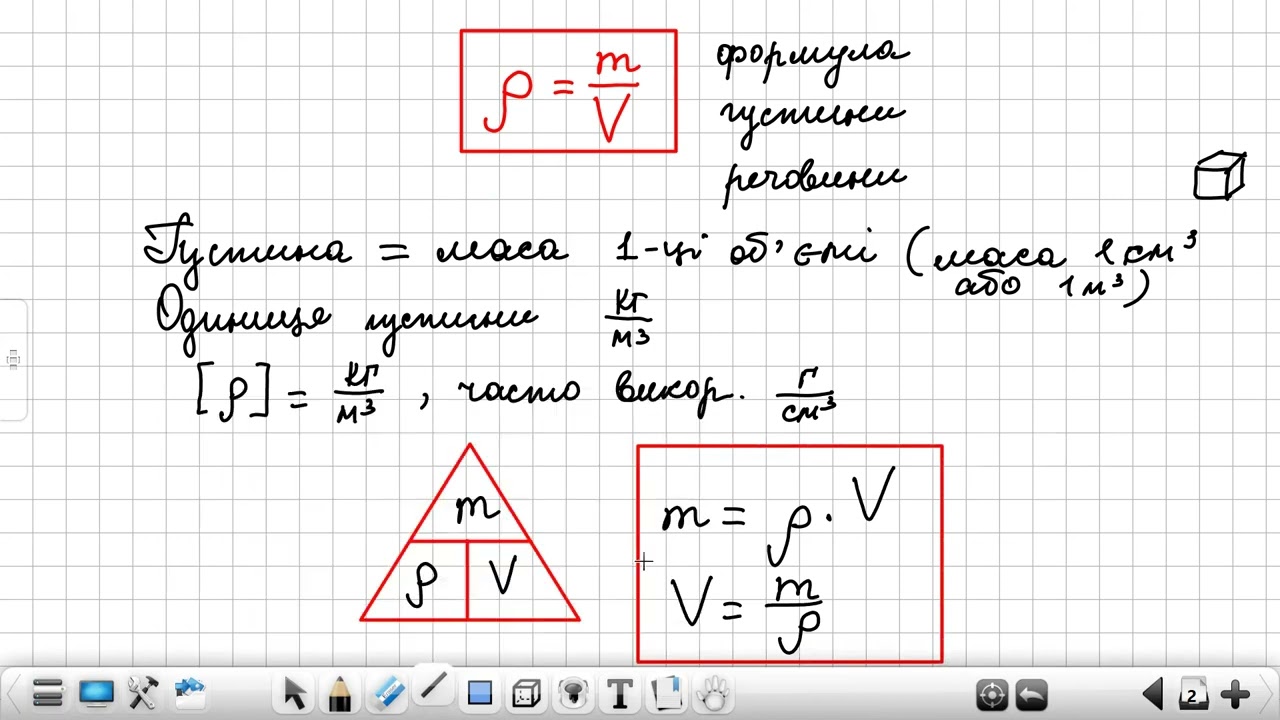 ρ = m/V
формула
густини
речовини
Густина = маса 1-ці об'ємі (маса 1 см³
або 1 м³)
Одиниця густини кг/м³
[ρ] = кг/м³, часто викор. г/см³
m
ρ V
m = ρ · V
V = m/ρ
T
2